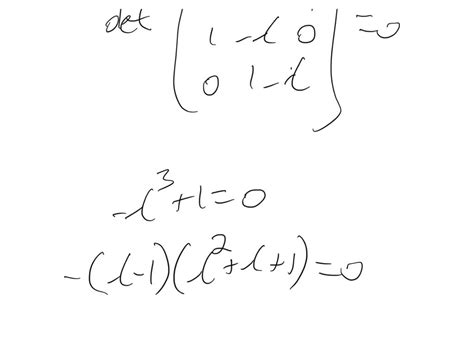 det ( 1 -λ 0 ) = 0
0 1 -λ
-λ³+1=0
-(λ-1)(λ²+λ+1)=0